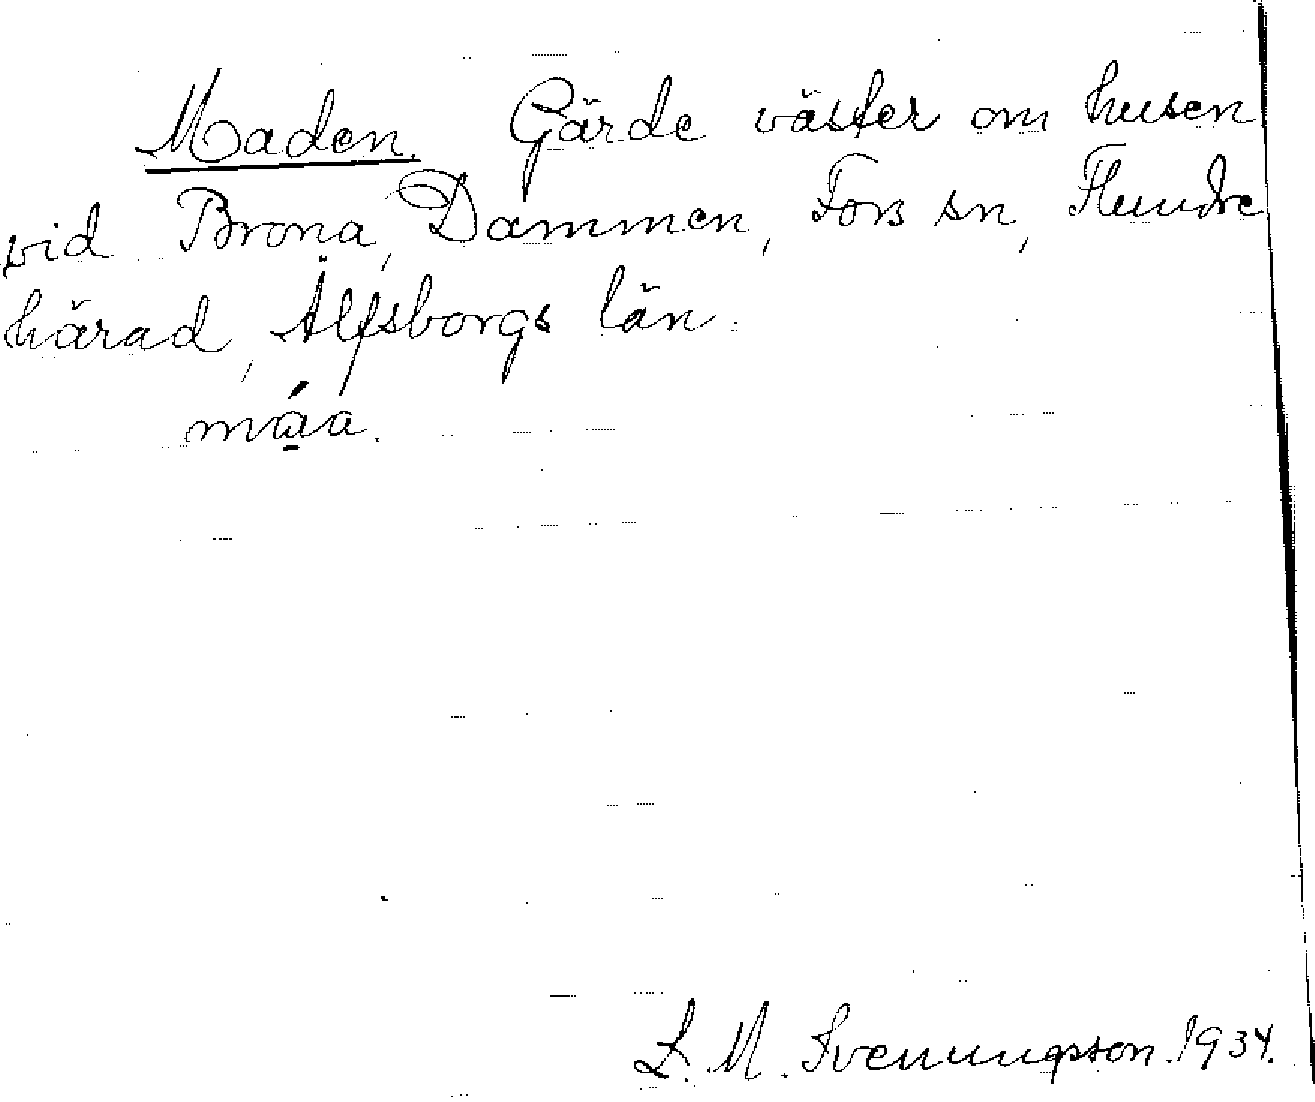 Maden. Gärde väster om husen
vid Brona, Dammen, Fors sn, Flundre
härad, Älfsborgs län.
máa.
L. M. Svenungsson. 1934.